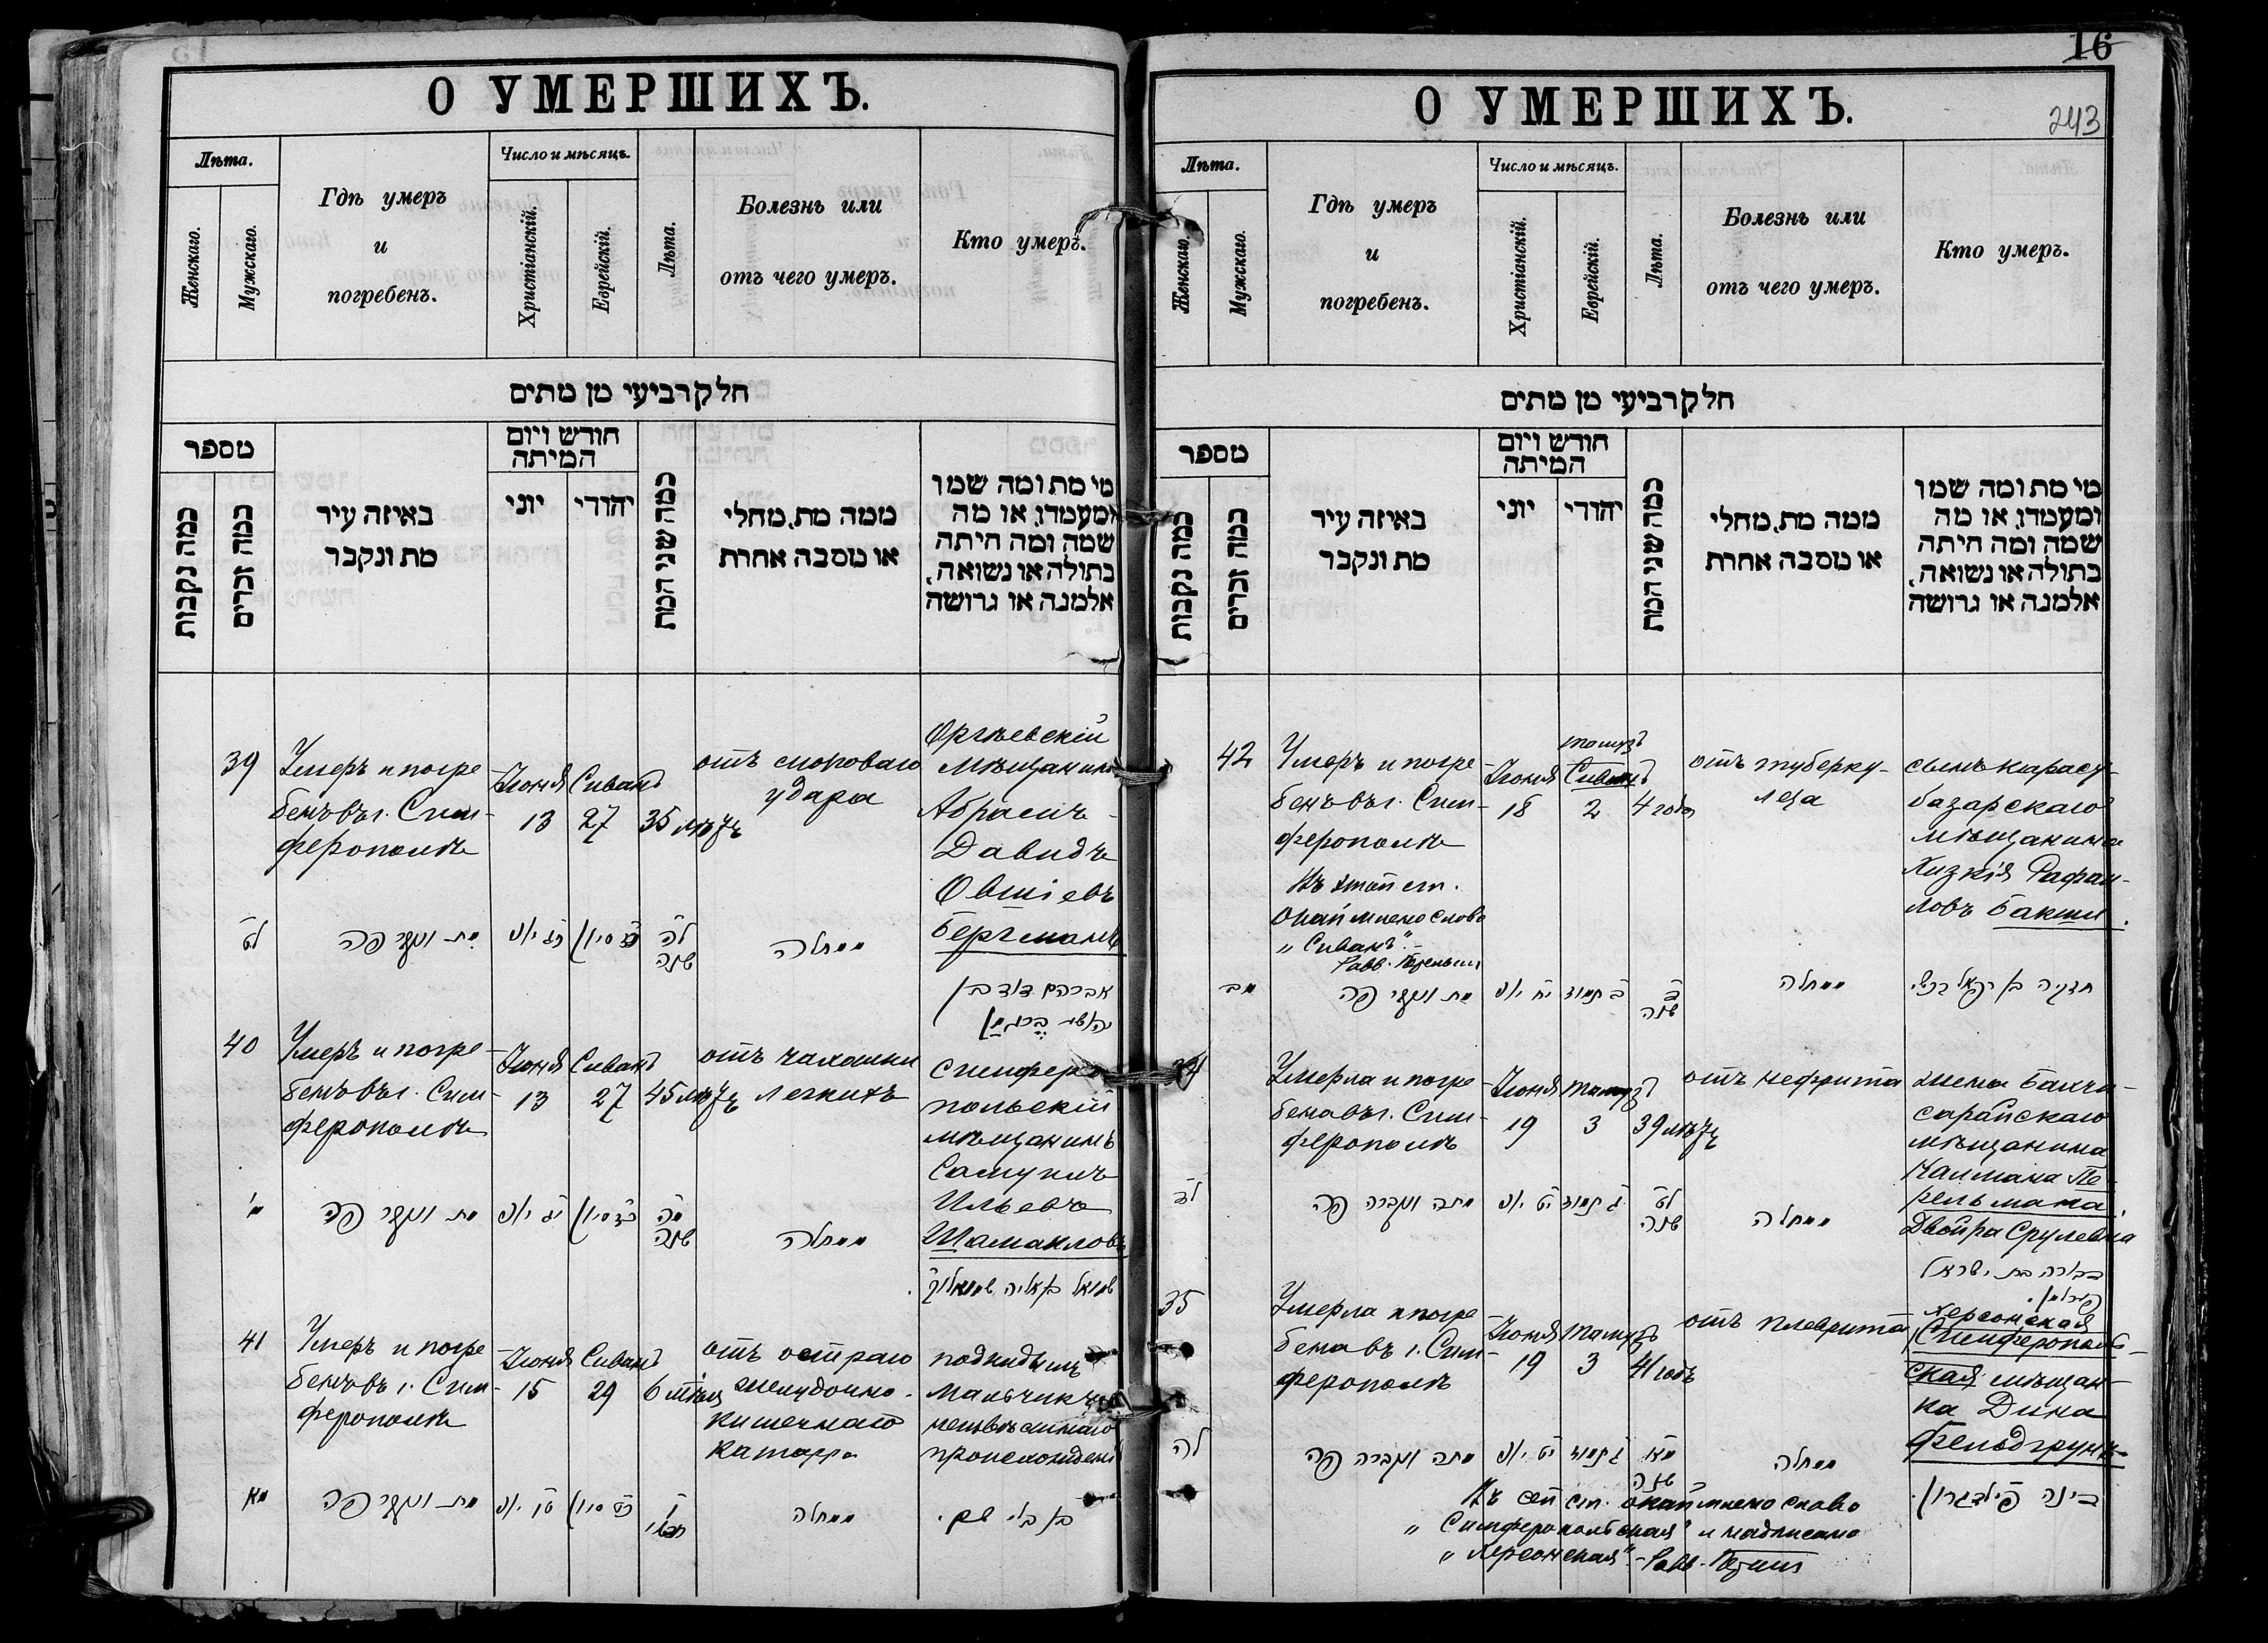 О УМЕРШИХЪ.
Лѣта.
Женскаго.
Мужскаго.
Гдѣ умеръ
и
погребенъ.
Число и мѣсяцъ.
Христіанскій.
Еврейскій.
Лѣта.
Болезнь или
отъ чего умеръ.
Кто умеръ.
חלק רביעי מן מתים
מספר
כמה נקבות
כמה זכרים
באיזה עיר
מת ונקבר
חודש ויום
המיתה
יוני
יהודי
כמה שני המת
ממה מת, מחלי
או מסבה אחרת
מי מת ומה שמו
ומעמדו, או מה
שמה ומה היתה
בתולה או נשואה,
אלמנה או גרושה
39
Умеръ и погре-
бенъ въ г. Сим-
ферополѣ
Іюня
13
Сиванъ
27
35 лѣтъ
отъ
удара
Оргѣевскій
мѣщанинъ
Абрамъ-
Давидъ
Овшіевъ
Бергманъ
לט
מת ונקבר פה
יוני
סיון
לה
שנה
ממחלה
אברהם דוד בן
יהושע ברגמן
40
Умеръ и погре-
бенъ въ г. Сим-
ферополѣ
Іюня
13
Сиванъ
27
45 лѣтъ
отъ чахотки
легкихъ
Симферо-
польскій
мѣщанинъ
Самуилъ
Ильевъ
Шамаиловъ
מ
מת ונקבר פה
יוני
סיון
מה
שנה
ממחלה
שמואל בן אליה
41
Умеръ и погре-
бенъ въ г. Сим-
ферополѣ
Іюня
15
Сиванъ
29
6 мѣсяц
отъ остраго
желудочно-
кишечнаго
катарра
подкидышъ
мальчикъ
неизвѣстнаго
происхожденія
מא
מת ונקבר פה
טו יוני
כט סיון
ו
חדשי
ממחלה
בן בלי שם.
16
243
О УМЕРШИХЪ.
Лѣта.
Женскаго.
Мужскаго.
Гдѣ умеръ
и
погребенъ.
Число и мѣсяцъ.
Христіанскій.
Еврейскій.
Лѣта.
Болезнь или
отъ чего умеръ.
Кто умеръ.
חלק רביעי מן מתים
מספר
כמה נקבות
כמה זכרים
באיזה עיר
מת ונקבר
חודש ויום
המיתה
יוני
יהודי
כמה שני המת
ממה מת, מחלי
או מסבה אחרת
מי מת ומה שמו
ומעמדו, או מה
שמה ומה היתה
בתולה או נשואה,
אלמנה או גרושה
42
Умеръ и погре-
бенъ въ г. Сим-
ферополѣ
Въ этой ст.
слово
„Сиванъ“.-
Равв.
Іюня
18
тамузъ
Сиванъ
2
4 года
отъ туберку-
леза
сынъ карасу-
базарскаго
мѣщанина
Хизкія Рафаи-
ловъ Бакши.
מב
מת ונקבר פה
יח יוני
ב תמוז
ד
שנה
ממחלה
חזקיה בן רפאל
34
Умерла и погре-
бена въ г. Сим-
ферополѣ
Іюня
19
Тамузъ
3
39 лѣтъ
отъ нефрита
жена Бахчи-
сарайскаго
мѣщанина
Налмана Пе-
рельмана,
Двойра Срулевна
לד
מתה ונקברה פה
יט יוני
ג תמוז
לט
שנה
ממחלה
דבורה בת ישראל
פערלמן.
35
Умерла и погре-
бена въ г. Сим-
ферополѣ
Іюня
19
Тамузъ
3
41 годъ
отъ плеврита
Херсонская
Симферополь-
ская мѣщан-
ка Дина
Фельдгрунъ
לה
מתה ונקברה פה
יט יוני
ג תמוז
מא
שנה
ממחלה
דינה פילדגרון.
Въ сей ст. слово
„Симферопольская“ и надписано
„Херсонская“. - Равв.